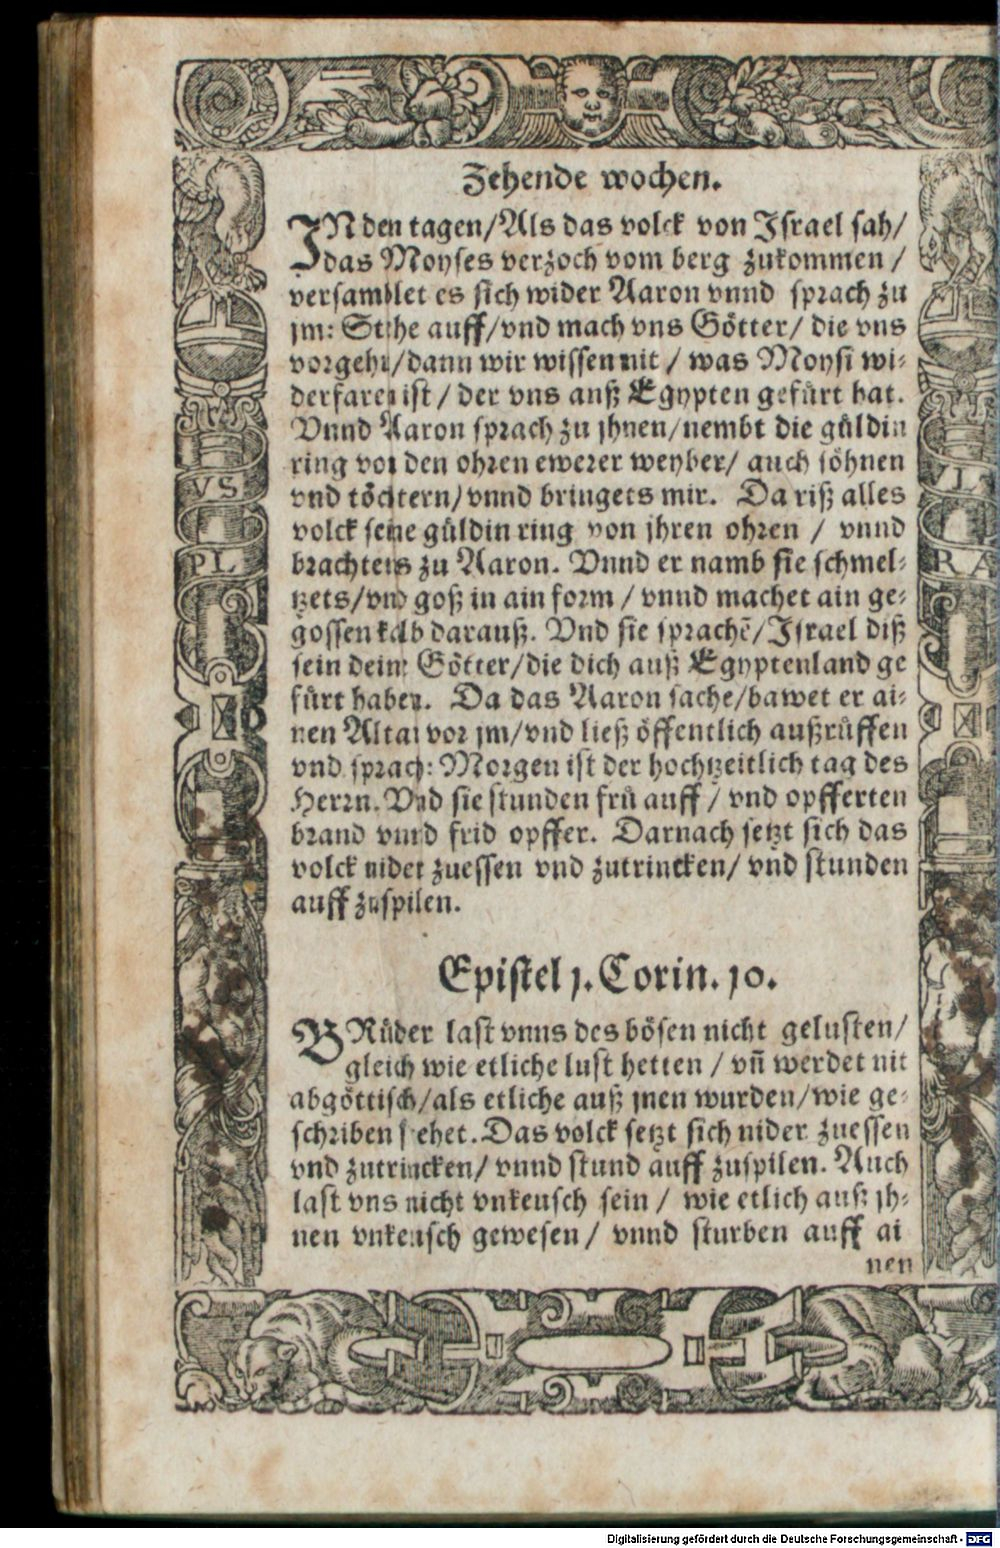 Zehende wochen.
IN den tagen/Als das volck von Israel sah/
das Moyses verzoch vom berg zukommen/
versamblet es sich wider Aaron vnnd sprach zu
jm: Stehe auff/vnd mach vns Götter/ die vns
vorgehn/dann wir wissen nit/ was Moysi wi-
derfaren ist/ der vns auß Egypten gefürt hat.
Vnnd Aaron sprach zu jhnen/nembt die güldin
ring von den ohren ewerer weyber/ auch söhnen
vnd töchtern/vnnd bringets mir. Da riß alles
volck seine güldin ring von jhren ohren / vnnd
brachtens zu Aaron. Vnnd er namb sie schmel-
tzets/vnd goß in ain form / vnnd machet ain ge-
gossen kalb darauß. Vnd sie sprachē/Israel diß
sein deine Götter/die dich auß Egyptenland ge
fürt haben. Da das Aaron sache/bawet er ai-
nen Altar vor jm/vnd ließ öffentlich außrůffen
vnd sprach: Morgen ist der hochtzeitlich tag des
Herrn. Vnd sie stunden frů auff/ vnd opfferten
brand vnnd frid opffer. Darnach setzt sich das
volck nider zuessen vnd zutrincken/ vnd stunden
auff zuspilen.
Epistel j. Corin. jo.
BRüder last vnns des bösen nicht gelusten/
gleich wie etliche lust hetten / vñ werdet nit
abgöttisch/als etliche auß jnen wurden/wie ge-
schriben stehet. Das volck setzt sich nider zuessen
vnd zutrincken/ vnnd stund auff zuspilen. Auch
last vns nicht vnkeusch sein / wie etlich auß jh-
nen vnkeusch gewesen/ vnnd sturben auff ai
nen
VS
PL
VL
RA
Digitalisierung gefördert durch die Deutsche Forschungsgemeinschaft - DFG